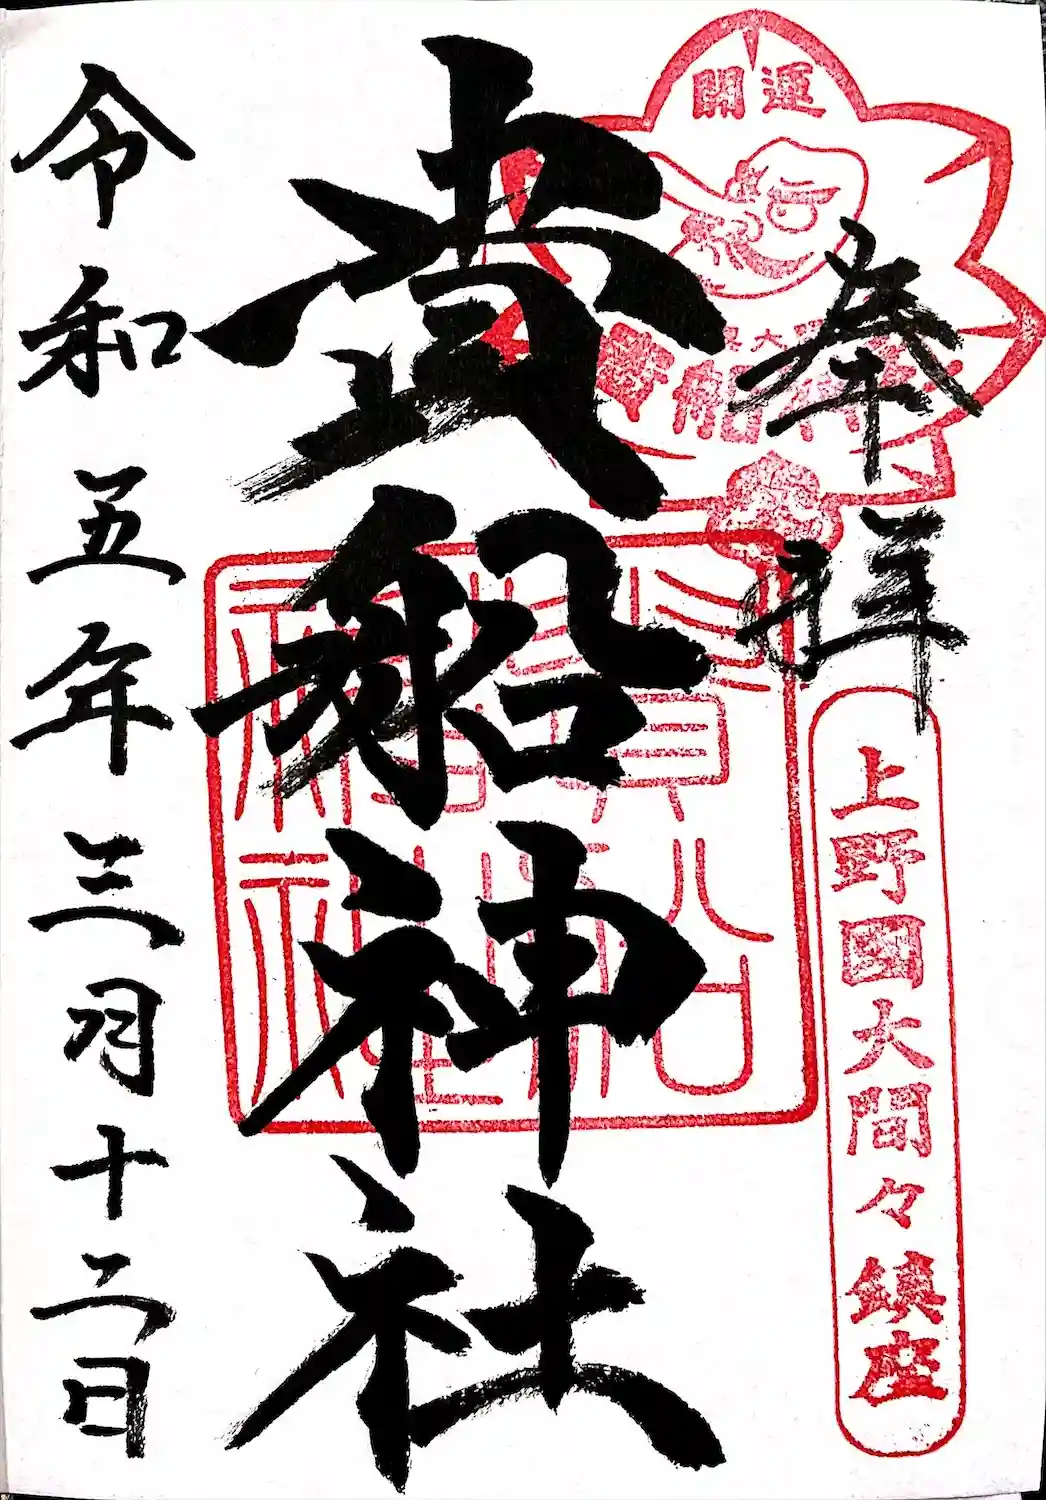 開運
奉拝
上野國大間々鎮座
貴船神社
令和五年三月十二日